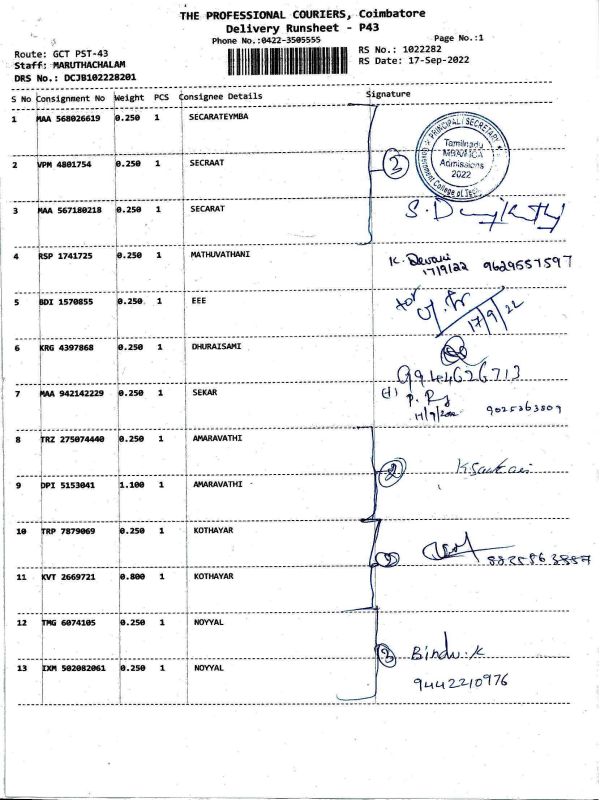 THE PROFESSIONAL COURIERS, Coimbatore
Delivery Runsheet - P43
Phone No.:0422-3505555
Page No.:1
Route: GCT PST-43
RS No.: 1022282
Staff: MARUTHACHALAM
RS Date: 17-Sep-2022
DRS No.: DCJB102228201
S No Consignment No Weight PCS Consignee Details Signature
1 MAA 568026619 0.250 1 SECARATEYMBA
PRINCIPAL / SECRETARY
Tamilnadu
Admissions
2022
2 VPM 4801754 0.250 1 SECRAAT 3
3 MAA 567180218 0.250 1 SECARAT
4 RSP 1741725 0.250 1 MATHUVATHANI K. Devani
17/9/22 9629557597
5 BDI 1570855 0.250 1 EEE for
17/9/22
6 KRG 4397868 0.250 1 DHURAISAMI
9944626713
7 MAA 942142229 0.250 1 SEKAR
9025363809
8 TRZ 275074440 0.250 1 AMARAVATHI
2
9 DPI 5153041 1.100 1 AMARAVATHI
10 TRP 7879069 0.250 1 KOTHAYAR
8825863887
11 KVT 2669721 0.800 1 KOTHAYAR
12 TMG 6074105 0.250 1 NOYYAL
3 Bindu.K
13 IXM 502082061 0.250 1 NOYYAL
9442210976